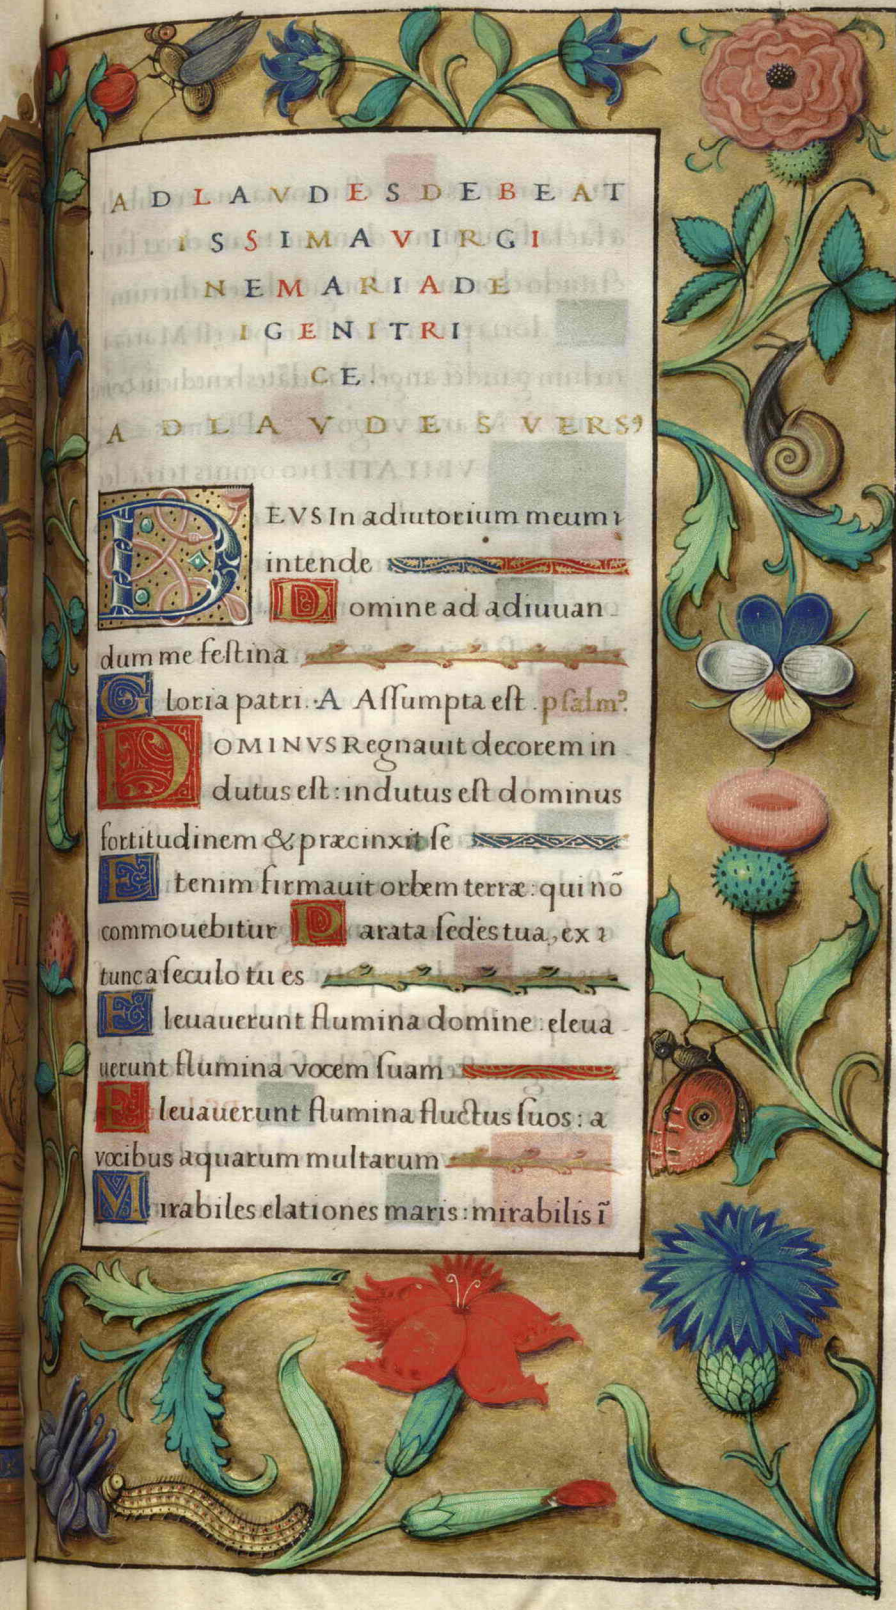 AD LAVDES DE BEAT
ISSIMA VIRGI
NE MARIA DE
I GENITRI
CE.
AD LAVDES VERSꝰ
DEVS In adiutorium meum ı
intende
Domine ad adiuuan
dum me festina
Gloria patri. A Assumpta est . psalmꝰ.
DOMINVS Regnauit decorem in
dutus est : indutus est dominus
fortitudinem & præcinxit se
Etenim firmauit orbem terræ : qui nõ
commouebitur Parata sedes tua, ex ı
tunc a seculo tu es
Eleuauerunt flumina domine : eleua
uerunt flumina vocem suam
Eleuauerunt flumina fluctus suos : a
vocibus aquarum multarum
Mirabiles elationes maris : mirabilis ĩ